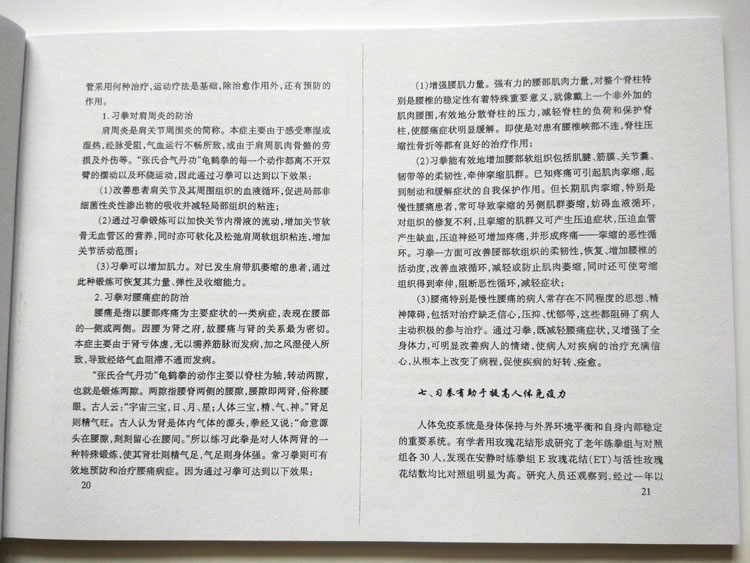 管采用何种治疗,运动疗法是基础,除治愈作用外,还有预防的
作用。
1.习拳对肩周炎的防治
肩周炎是肩关节周围炎的简称。本症主要由于感受寒湿或
湿热,经脉受阻,气血运行不畅所致,或由于肩周肌肉骨骼的劳
损及外伤等。“张氏合气丹功”龟鹤拳的每一个动作都离不开双
臂的摆动以及环绕运动,因此通过习拳可以达到以下效果:
(1)改善患者肩关节及其周围组织的血液循环,促进局部非
细菌性炎性渗出物的吸收并减轻局部组织的粘连;
(2)通过习拳锻炼可以加快关节内滑液的流动,增加关节软
骨无血管区的营养,同时亦可软化及松弛肩周软组织粘连,增加
关节活动范围;
(3)习拳可以增加肌力。对已发生肩带肌萎缩的患者,通过
此种锻炼可恢复其力量、弹性及收缩能力。
2.习拳对腰痛症的防治
腰痛是指以腰部疼痛为主要症状的一类病症,表现在腰部
的一侧或两侧。因腰为肾之府,故腰痛与肾的关系最为密切。
本症主要由于肾亏体虚,无以濡养筋脉而发病,加之风湿侵入所
致,导致经络气血阻滞不通而发病。
“张氏合气丹功”龟鹤拳的动作主要以脊柱为轴,转动两隙,
也就是锻炼两隙。两隙指腰脊两侧的腰隙,腰隙即两肾,俗称腰
眼。古人云:“宇宙三宝,日、月、星;人体三宝,精、气、神。”肾足
则精气旺。古人认为肾是体内气体的源头,拳经又说:“命意源
头在腰隙,刻刻留心在腰间。”所以练习此拳是对人体两肾的一
种特殊锻炼,使其肾壮则精气足,气足则身体强。常习拳则可有
效地预防和治疗腰痛病症。因为通过习拳可达到以下效果:
20
(1)增强腰肌力量。强有力的腰部肌肉力量,对整个脊柱特
别是腰椎的稳定性有着特殊重要意义,就像戴上一个非外加的
肌肉腰围,有效地分散脊柱的压力,减轻脊柱的负荷和保护脊
柱,使腰痛症状明显缓解。即使是对患有腰椎峡部不连,脊柱压
缩性骨折等都有良好的治疗作用;
(2)习拳能有效地增加腰部软组织包括肌腱、筋膜、关节囊、
韧带等的柔韧性,牵伸挛缩肌群。已知疼痛可引起肌肉挛缩,起
到制动和缓解症状的自我保护作用。但长期肌肉挛缩,特别是
慢性腰痛患者,常可导致挛缩的另侧肌群萎缩,妨碍血液循环,
对组织的修复不利,且挛缩的肌群又可产生压迫症状,压迫血管
产生缺血,压迫神经可增加疼痛,并形成疼痛——挛缩的恶性循
环。习拳一方面可改善腰部软组织的柔韧性,恢复、增加腰椎的
活动度,改善血液循环,减轻或防止肌肉萎缩,同时还可使弯缩
组织得到牵伸,阻断恶性循环,减轻症状;
(3)腰痛特别是慢性腰痛的病人常存在不同程度的思想、精
神障碍,包括对治疗缺乏信心,压抑、忧郁等,这些都阻碍了病人
主动积极的参与治疗。通过习拳,既减轻腰痛症状,又增强了全
身体力,可明显改善病人的情绪,使病人对疾病的治疗充满信
心,从根本上改变了病程,促使疾病的好转、痊愈。
七、习拳有助于提高人体免疫力
人体免疫系统是身体保持与外界环境平衡和自身内部稳定
的重要系统。有学者用玫瑰花结形成研究了老年练拳组与对照
组各30人,发现在安静时练拳组E玫瑰花结(ET)与活性玫瑰
花结数均比对照组明显为高。研究人员还观察到,经过一年以
21